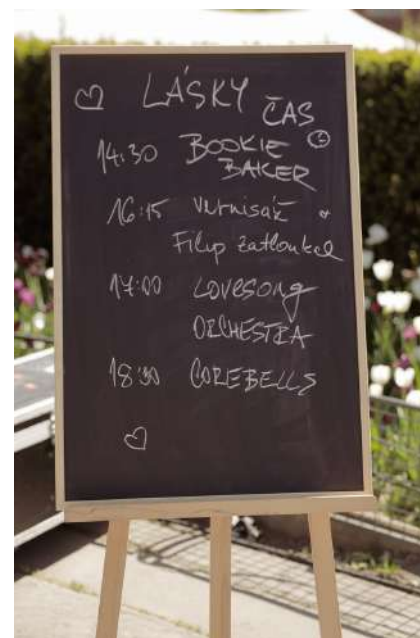 LÁSKY ČAS
14:30 BOOKIE
BAKER
16:15 Vernisáž
Filip Zatloukal
17:00 LOVESONG
ORCHESTRA
18:30 COREBELLS